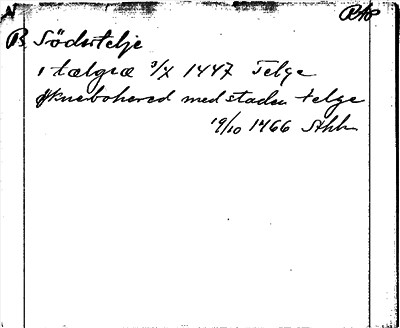 B Södertelje
i tælgræ 3/X 1447 Telge
Øknebohæred med staden telge
19/10 1466 Sthlm